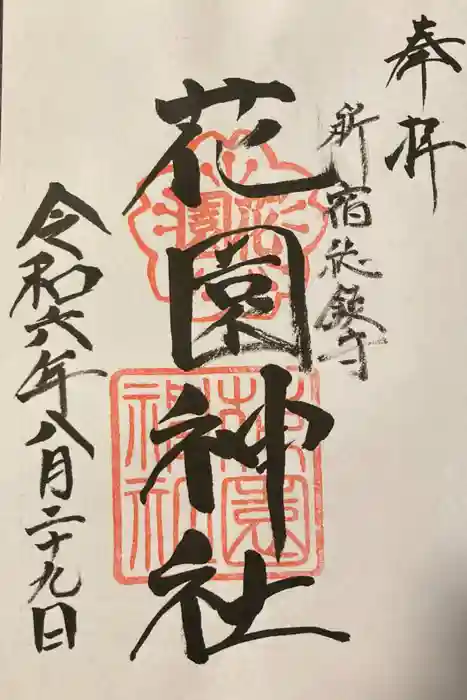 奉拝
新宿総鎮守
花園神社
令和六年八月二十九日
花園
花園神社